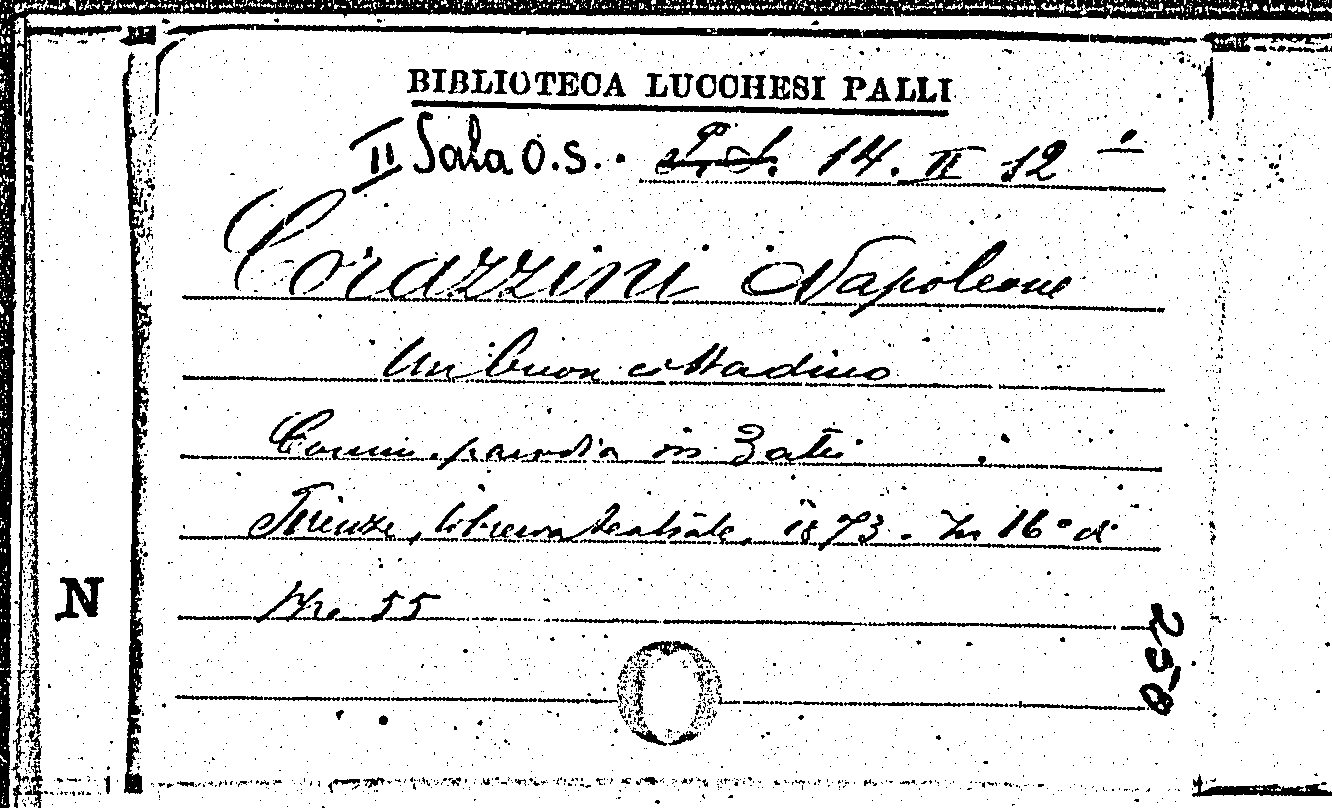 BIBLIOTECA LUCCHESI PALLI
II Sala O.S. 14. II 12
Corazzini Napoleone
Un buon cittadino
Comm. parodia in 3 atti
Firenze, libreria teatrale, 1873. In 16° di
55
N
250